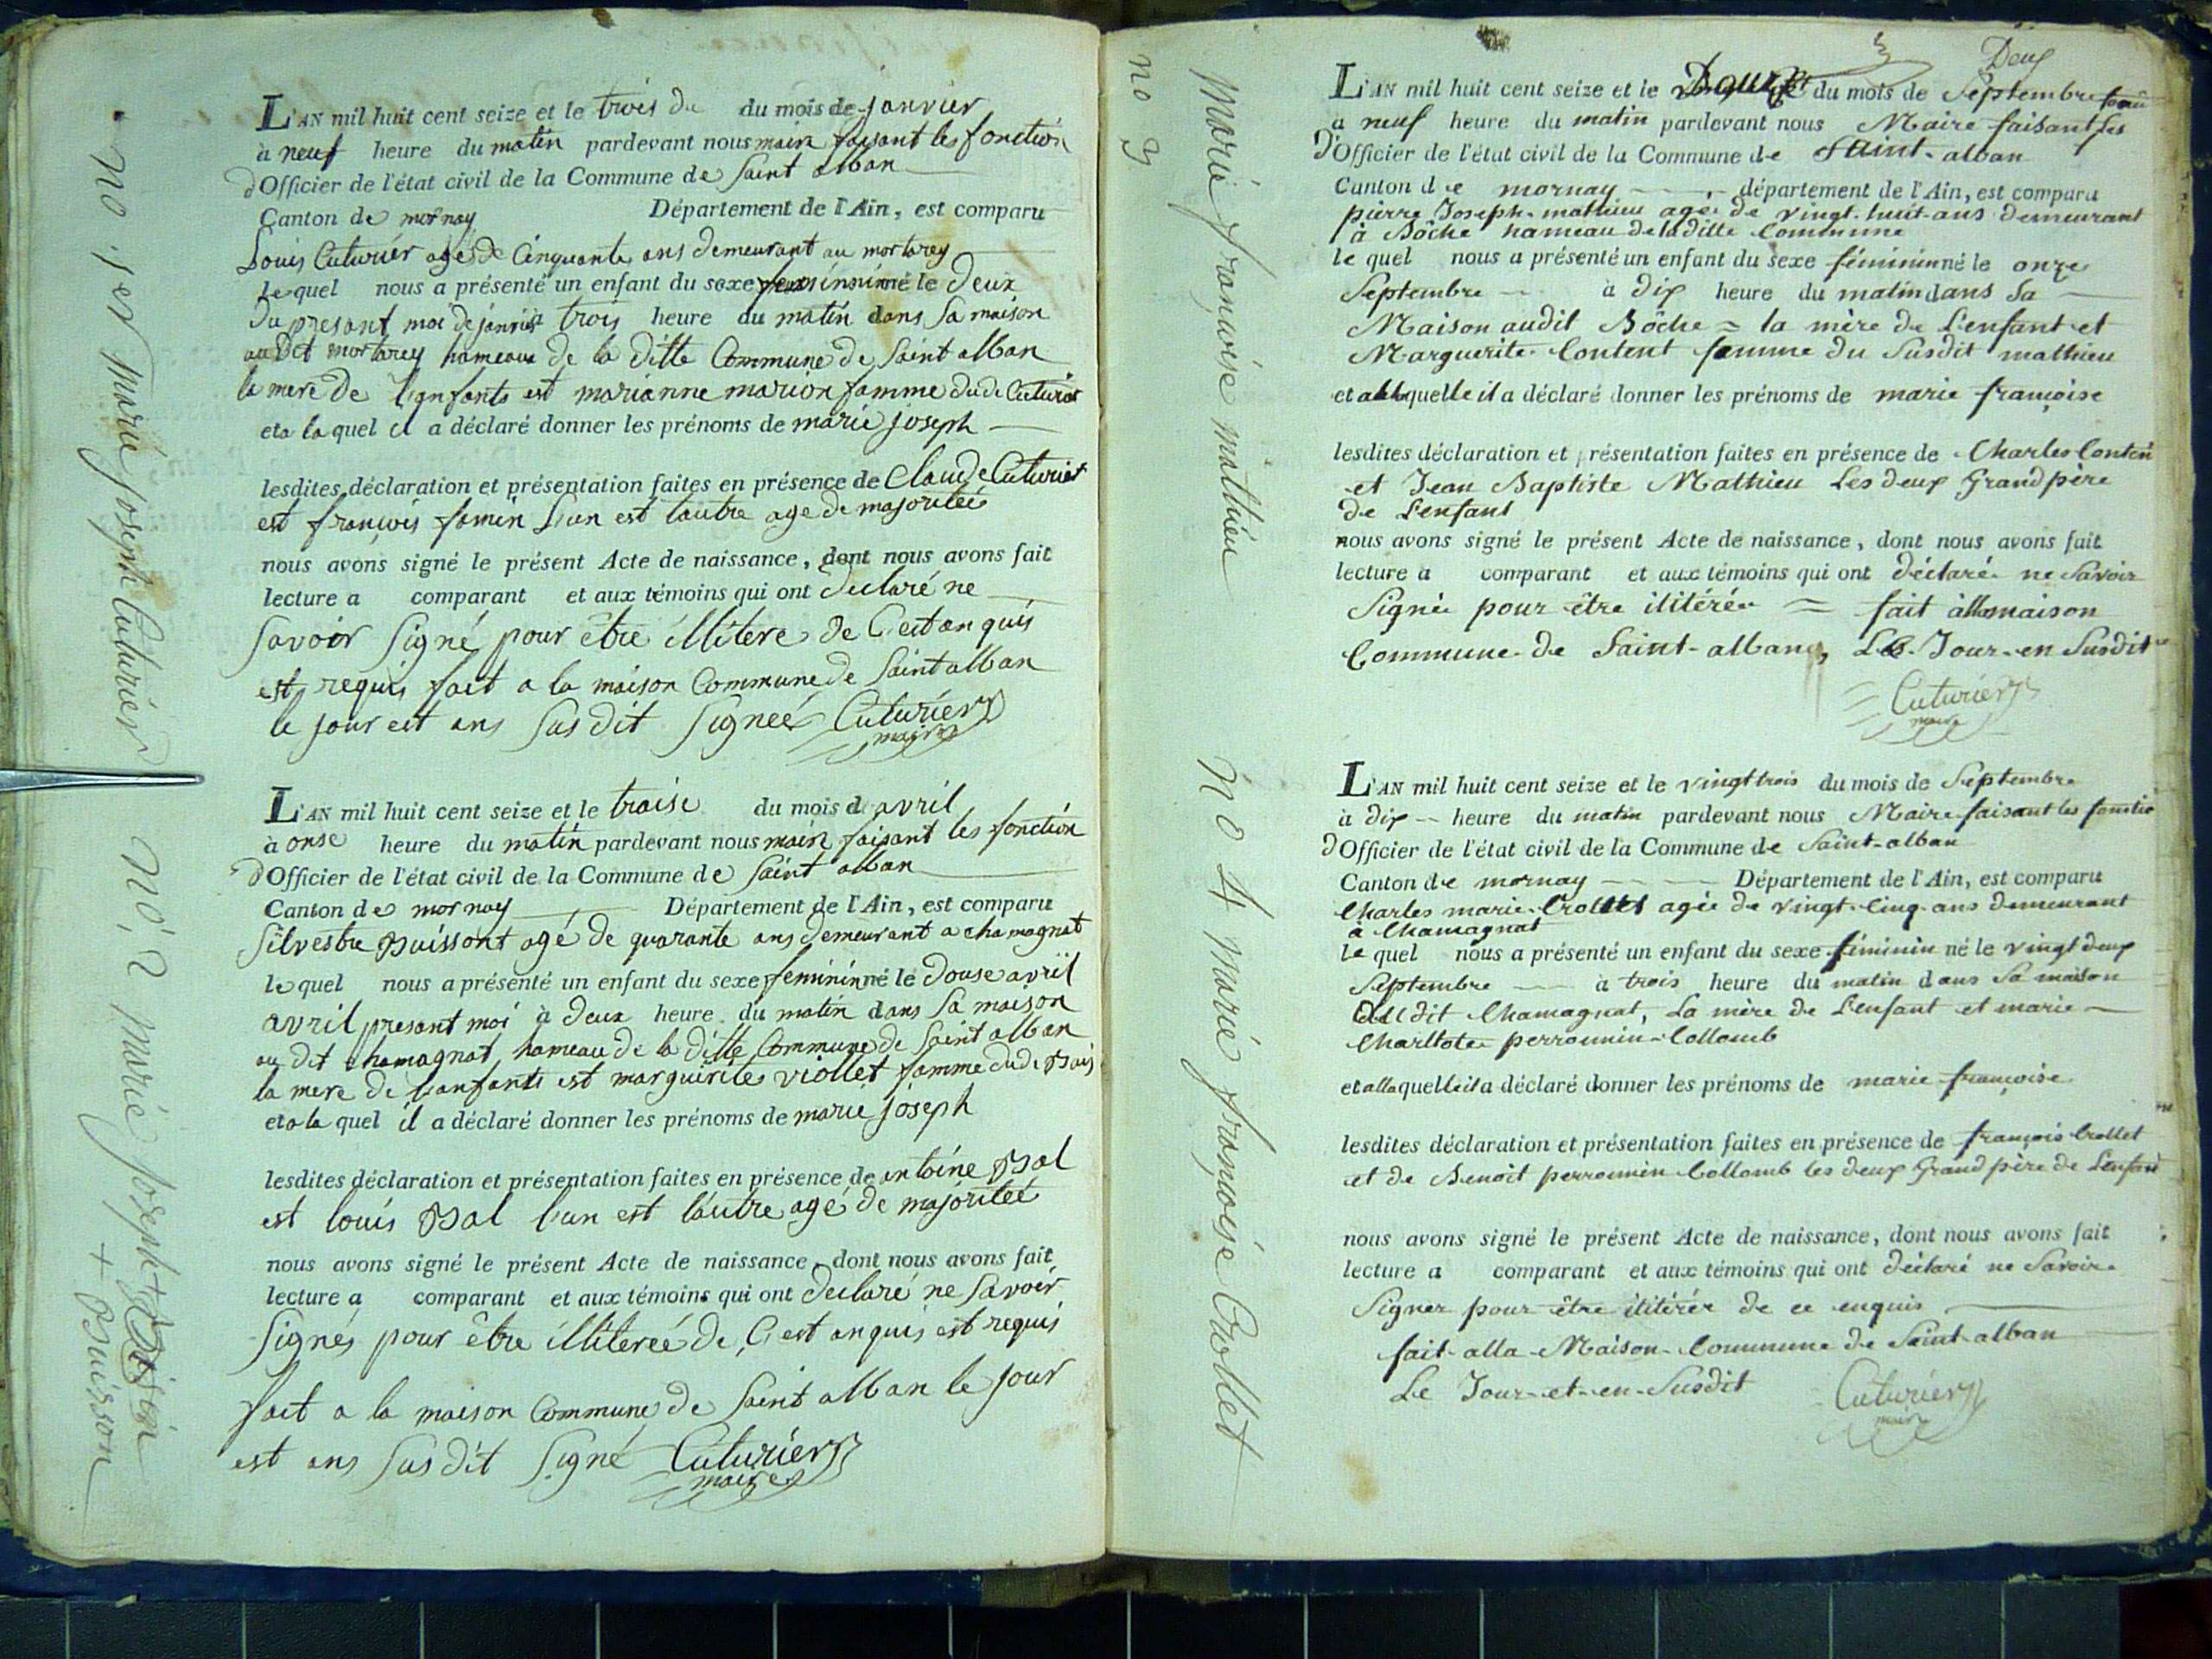 no. 1er marie joseph Cuturier
L'AN mil huit cent seize et le trois du du mois de janvier
à neuf heure du matin pardevant nous maire faisant les fonction
d'Officier de l'état civil de la Commune de Saint alban
Canton de mornay Département de l'Ain, est comparu
Louis Cuturier agé de Cinquante ans demeurant au mortarey
le quel nous a présenté un enfant du sexe femininné le deux
du presant moi de janvier trois heure du matin dans sa maison
au dit mortarey hameaux de la ditte Commune de Saint alban
la mere de l'enfants est marianne marion famme dudi Cuturier
et a la quel il a déclaré donner les prénoms de marie joseph
lesdites déclaration et présentation faites en présence de Claude Cuturier
est françois famin L'un est lautre age de majoriteé
nous avons signé le présent Acte de naissance, dont nous avons fait
lecture a comparant et aux témoins qui ont declaré ne
savoir signé pour être illitere de C'est anquis
est requis fait a la maison Commune de Saint alban
le jour est ans susdit signeé Cuturier
maire
no. 2 marie joseph +
+ Buisson
L'AN mil huit cent seize et le traise du mois d avril
à onse heure du matin pardevant nous maire faisant les fonction
d'Officier de l'état civil de la Commune de Saint alban
Canton de mornay Département de l'Ain, est comparu
Silvestre Buissont agé de quarante ans demeurant a chamagnat
le quel nous a présenté un enfant du sexe femininné le douse avril
avril presant moi à deux heure du matin dans sa maison
au dit chamagnat hameau de la ditte Commune de Saint alban
la mere de l'anfants est marguirite viollet famme dudi Buis
et a la quel il a déclaré donner les prénoms de marie joseph
lesdites déclaration et présentation faites en présence de antoine Bal
est louis Bal l'un est lautre agé de majoriteé
nous avons signé le présent Acte de naissance, dont nous avons fait
lecture a comparant et aux témoins qui ont declaré ne savoir
signés pour être illitereé de C'est anquis est requis
fait a la maison Commune de Saint alban le jour
est ans susdit signé Cuturier
maire
Deux
no 3
Marie françoise mathieu
L'AN mil huit cent seize et le Douze du mois de Septembre
à neuf heure du matin pardevant nous Maire faisant les
d'Officier de l'état civil de la Commune de Saint-alban
Canton de mornay département de l'Ain, est comparu
pierre Joseph mathieu agé de vingt-huit ans demeurant
à Bôche hameau de la ditte Commune
le quel nous a présenté un enfant du sexe fémininné le onze
Septembre à dix heure du matin dans Sa
Maison audit Bôche = la mère de l'enfant et
Marguerite Content femme du Susdit mathieu
et alaquelle il a déclaré donner les prénoms de marie françoise
lesdites déclaration et présentation faites en présence de Charles Conten
et Jean Baptiste Mathieu Les deux Grand père
de L'enfant
nous avons signé le présent Acte de naissance, dont nous avons fait
lecture a comparant et aux témoins qui ont déclaré ne Savoir
Signée pour être ilitérée = fait àlla maison
Commune de Saint-alban, Le Jour-en Susdit
Cuturier
maire
no 4 marie françoise Crollet
L'AN mil huit cent seize et le vingt trois du mois de Septembre
à dix heure du matin pardevant nous Maire faisant les fonctio
d'Officier de l'état civil de la Commune de Saint-alban
Canton de mornay Département de l'Ain, est comparu
Charles marie Crollet agée de vingt-Cinq ans demeurant
à Chamagnat
le quel nous a présenté un enfant du sexe féminin né le vingt deux
Septembre à trois heure du matin dans Sa maison
audit Chamagnat, La mère de L'enfant et marie
Charltote perrounin Collomb
et allaquelle il a déclaré donner les prénoms de marie françoise
lesdites déclaration et présentation faites en présence de françois Crollet
et de Benoit perrounin Collomb les deux Grand père de L'enfant
nous avons signé le présent Acte de naissance, dont nous avons fait
lecture a comparant et aux témoins qui ont déclaré ne Savoir
Signer pour être ilitérée de ce enquis
fait alla Maison Commune de Saint-alban
Le Jour-et-en-Susdit Cuturier
maire